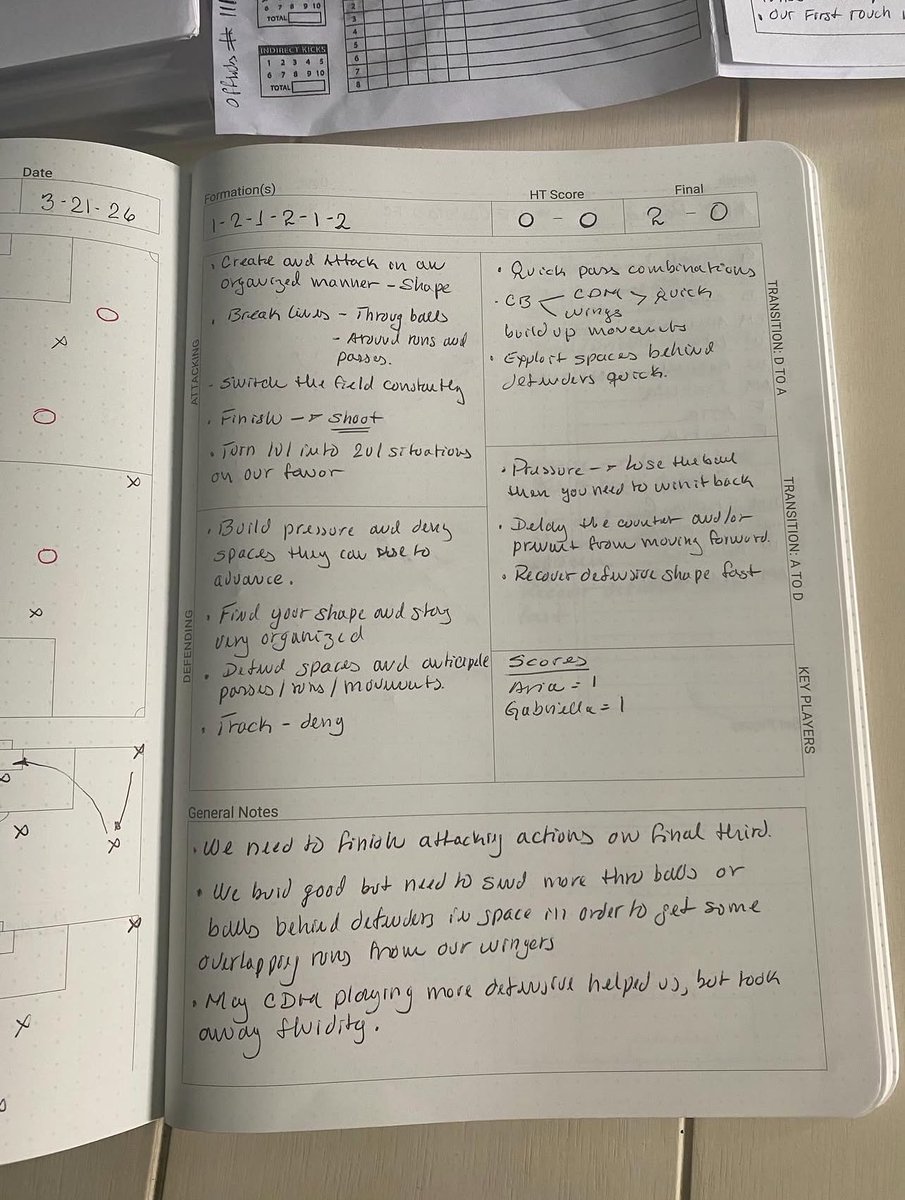 Offsides # 111
6 7 8 9 10
TOTAL
INDIRECT KICKS
1 2 3 4 5
6 7 8 9 10
TOTAL
2
3
4
5
6
7
8
• Our First Touch
Date
3-21-26
Formation(s)
1-2-1-2-1-2
HT Score
0 - 0
Final
2 - 0
ATTACKING
• Create and Attack in an
organized manner - Shape
• Break lines - Throug balls
- Around runs and
passes.
- Switch the field constantly
• Finish → Shoot
• Turn 1v1 into 2v1 situations
on our favor
TRANSITION: D TO A
• Quick pass combinations
• CB < CDM > Quick
wings
build up movements
• Exploit spaces behind
defenders quick.
TRANSITION: A TO D
• Pressure → lose the ball
then you need to win it back
• Delay the counter and/or
prevent from moving forward.
• Recover defensive shape fast
DEFENDING
• Build pressure and deny
spaces they can use to
advance.
• Find your shape and stay
very organized
• Defend spaces and anticipate
passes/runs/movements.
• Track - deny
KEY PLAYERS
Scores
Aria = 1
Gabriella = 1
General Notes
• We need to finish attacking actions on final third.
• We buid good but need to send more thru balls or
balls behind defenders in space in order to get some
overlapping runs from our wingers
• May CDM playing more defensive helped us, but took
away fluidity.